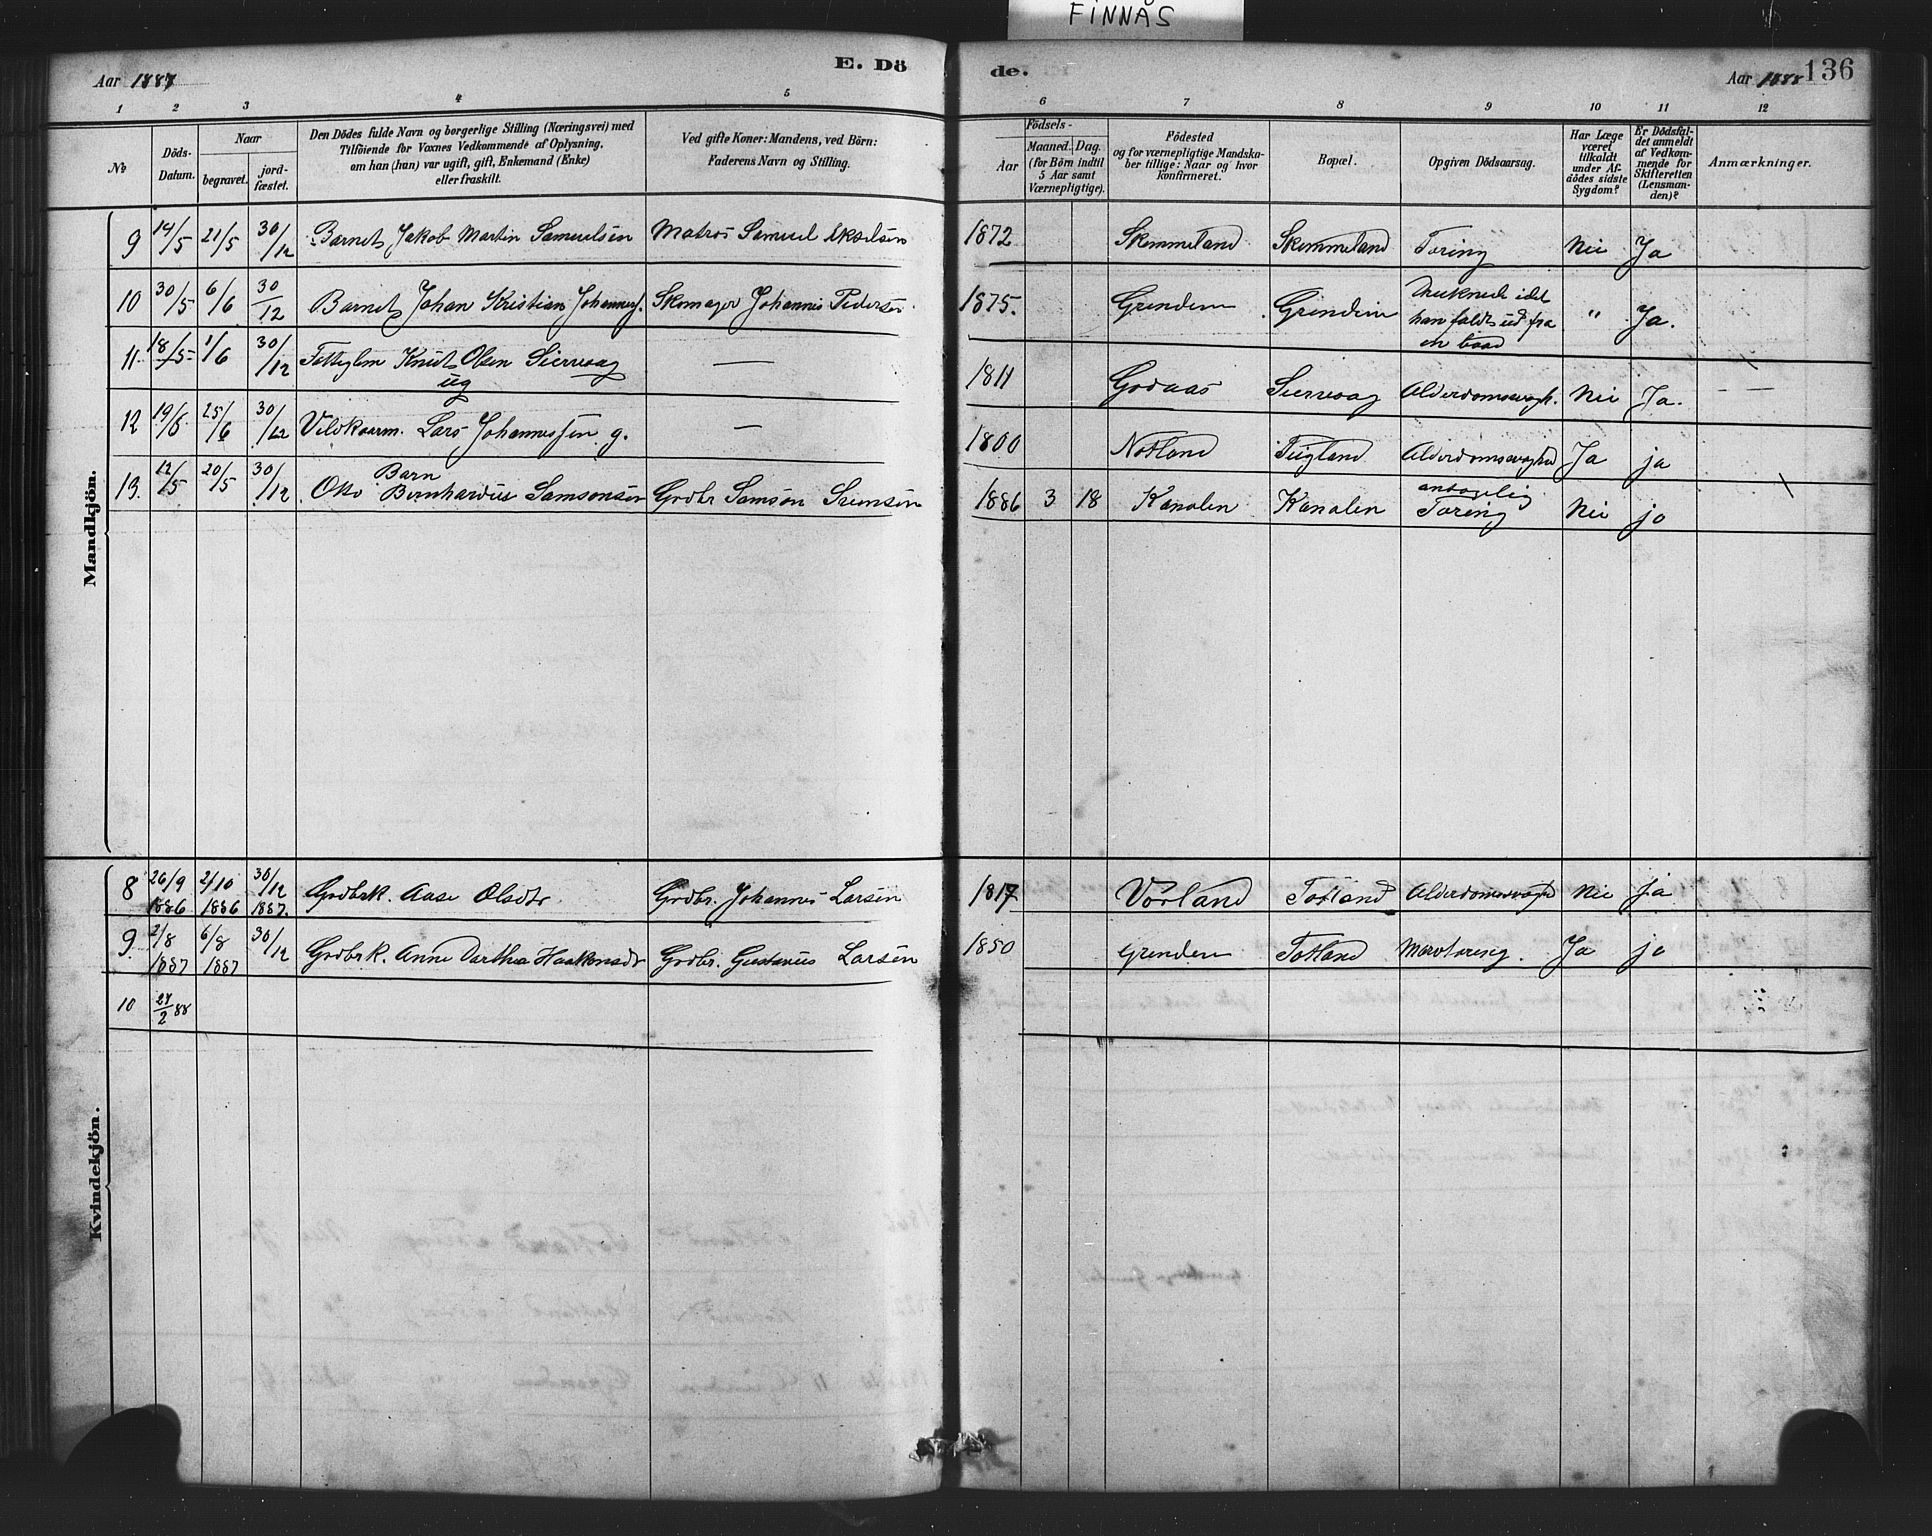 FINNÅS
Aar 1887 E. Dö
de. Aar 1888 136
1 2 3 4 5
6 7 8 9 10 11 12
No
Döds-Datum.
Naar
begravet. jord-fæstet.
Den Dödes fulde Navn og borgerlige Stilling (Næringsvei) med
Tilföiende for Voxnes Vedkommende af Oplysning,
om han (hun) var ugift, gift, Enkemand (Enke)
eller fraskilt.
Ved gifte Koner: Mandens, ved Börn:
Faderens Navn og Stilling.
Födsels-
Aar Maaned. Dag.
(for Börn indtil
5 Aar samt
Værnepligtige).
Födested
og for værnepligtige Mandska-
ber tillige: Naar og hvor
konfirmeret.
Bopæl.
Opgiven Dödsaarsag.
Har Læge
været
tilkaldt
under Af-
dödes sidste
Sygdom?
Er Dödsfal-
det anmeldt
af Vedkom-
mende for
Skifteretten
(Lensman-
den)?
Anmærkninger.
Mandkjön.
9 14/5 21/5 30/12 Barnet Jakob Martin Samuelsen Matros Samuel 1872 Skimmeland Skimmeland Tæring Nei Ja
10 30/5 6/6 30/12 Barnet Johan Kristian Johannes. Skomager Johannes Pedersen 1875. Grinden Grinden Druknede idet
han faldt ud fra
en baad " Ja.
11. 18/5 1/6 30/12 Knut Olsen Siervaag — 1811 Godaas Siervaag Alderdomssvagh. Nei Ja. — —
ug
12 19/6 25/6 30/12 Vilkaarm. Lars Johannessen g. — 1800 Notland Tugland Alderdomssvaghed Ja ja
13. 12/5 20/5 30/12 Barn
Otto Bernhardus Samsonsen Grdbr Samson Svensen 1886 3 18 Kanalen Kanalen antagelig
Tæring Nei ja
Kvindekjön.
8 26/9 1886 2/10 1886 30/12 1887. Grdbrk. Aase Olsdtr Grdbr. Johannes Larsen 1817 Vorland Totland Alderdomssvaghed Nei ja
9. 2/8 1887 6/8 1887 30/12 Grdbrk. Anne Darthea Haakonsdr Grdbr. Gustavius Larsen 1850 Grinden Totland Marvtæring. Ja ja
10 27/2 88